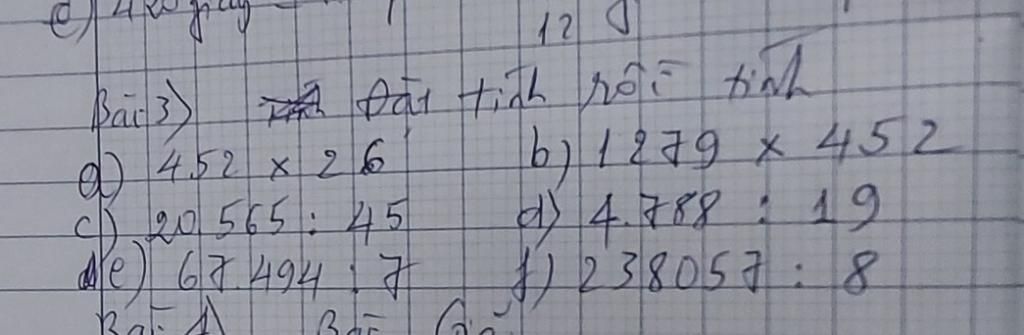 e) 420 giây
12
Bài 3) Đặt tính rồi tính
a) 452 x 26 b) 1279 x 452
c) 20.565 : 45 d) 4.788 : 19
e) 67.494 : 7 f) 238057 : 8